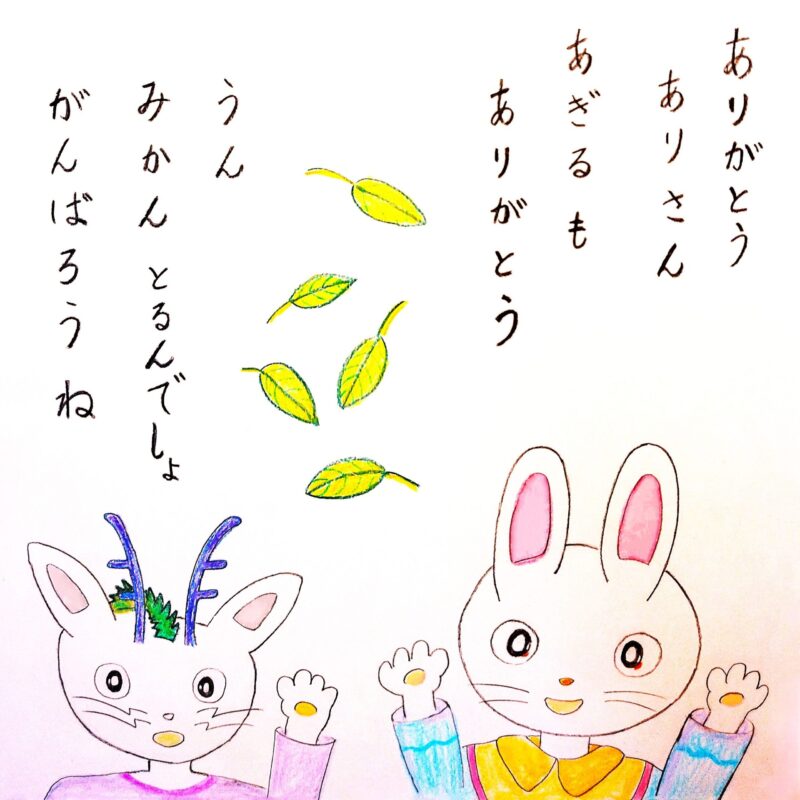 ありがとう
ありさん
あぎるも
ありがとう
うん
みかんとるんでしょ
がんばろうね